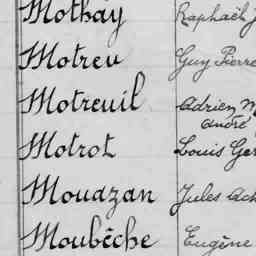 Mothay Raphaël J
Motrev Guy Pierre
Motreuil Adrien M
André
Motrot Louis Ger
Mouazan Jules Ach
Moubêche Eugène